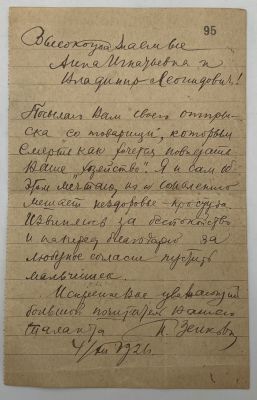 95
Высокоуважаемые
Анна Игнатьевна и
Владимир Леонидович!
Посылаю Вам своего отпрыска
со товарищи, который
смерть как хочет повидать
Ваше "хозяйство". Я и сам об
этом мечтаю, но к сожалению
мешает нездоровье - простуда.
Извиняюсь за беспокойство
и наперед благодарю за
любезное согласие пустить
мальчишек.
Искренне Вас уважающий
большой почитатель Вашего
таланта
4/XII 1926